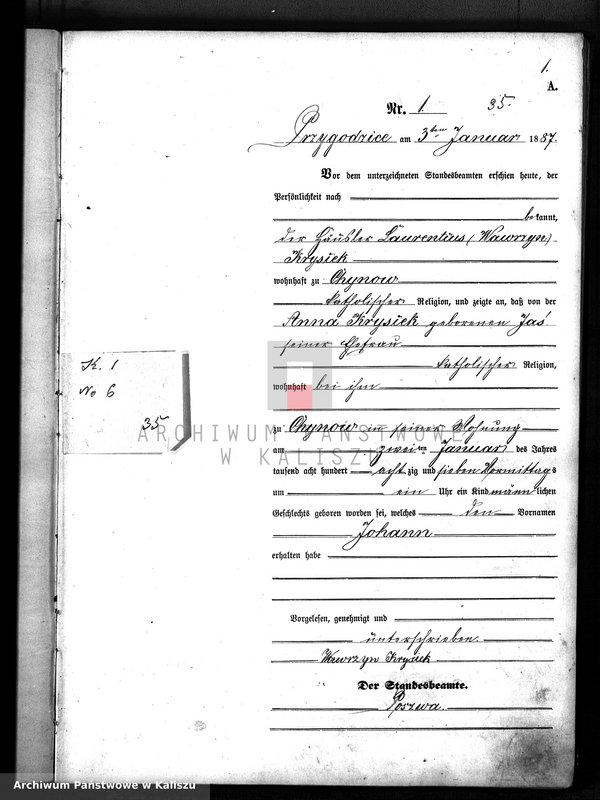 1.
A.
Nr. 1. 35.
Przygodzice am 3ten Januar 1887.
Vor dem unterzeichneten Standesbeamten erschien heute, der
Persönlichkeit nach
bekannt,
der Häusler Laurentius (Wawrzyn)
Krysiek
wohnhaft zu Chynow
katholischer Religion, und zeigte an, daß von der
Anna Krysiek geborenen Jaś
seiner Ehefrau
katholischer Religion,
wohnhaft bei ihm
zu Chynow in seiner Wohnung
am zweiten Januar des Jahres
tausend acht hundert achtzig und sieben Vormittags
um ein Uhr ein Kind männlichen
Geschlechts geboren worden sei, welches den Vornamen
Johann
erhalten habe
Vorgelesen, genehmigt und
unterschrieben.
Wawrzyn Krysiek
Der Standesbeamte.
Poszwa.
K. 1
No 6
35
ARCHIWUM PAŃSTWOWE
W KALISZU
Archiwum Państwowe w Kaliszu